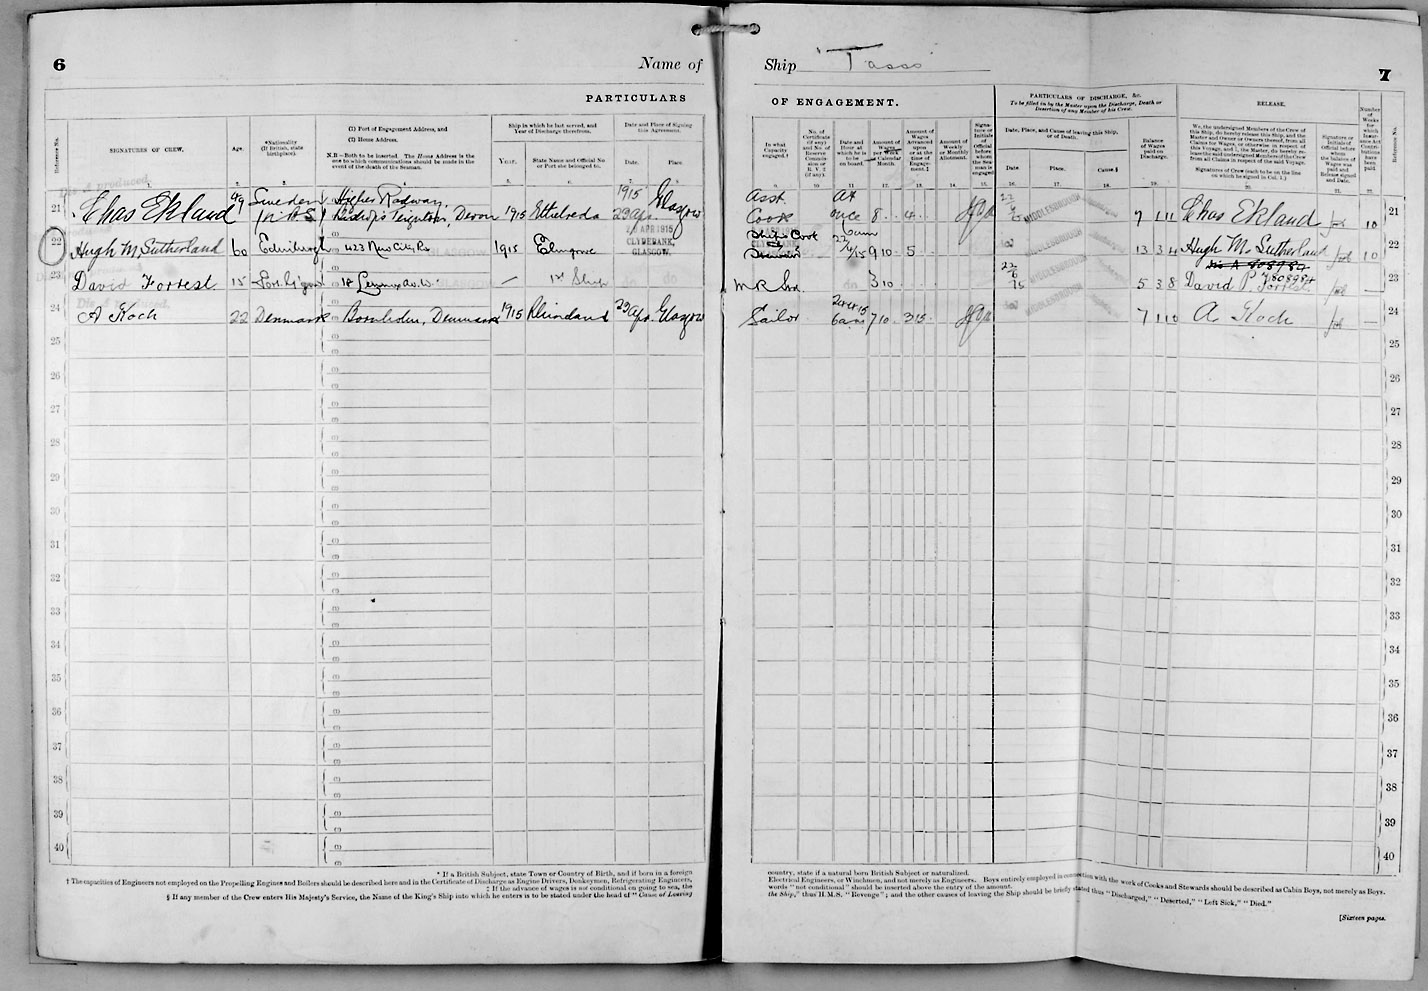 6
Name of
Ship "Tasso"
7
PARTICULARS
OF ENGAGEMENT.
Reference No.
SIGNATURES OF CREW.
Age.
*Nationality
(If British, state
birthplace).
(1) Port of Engagement Address, and
(2) Home Address.
N.B—Both to be inserted. The Home Address is the
one to which communications should be made in the
event of the death of the Seaman.
Ship in which he last served, and
Year of Discharge therefrom.
Year.
State Name and Official No.
or Port she belonged to.
Date and Place of Signing
this Agreement.
Date.
Place
In what
Capacity
engaged.†
No. of
Certificate
(if any)
and No. of
Reserve
Commis-
sion or
R. V. 2
(if any).
Date and
Hour at
which he is
to be
on board.
Amount of
Wages
per Week
or Calendar
Month.
Amount of
Wages
Advanced
upon
or at the
time of
Engage-
ment.‡
Amount of
Weekly
or Monthly
Allotment.
Signa-
ture or
Initials
of
Official
before
whom
the Sea
man is
engaged
PARTICULARS OF DISCHARGE, &c.
To be filled in by the Master upon the Discharge, Death or
Desertion of any Member of his Crew.
Date, Place, and Cause of leaving this Ship,
or of Death.
Date
Place.
Cause.§
Balance
of Wages
paid on
Discharge.
RELEASE.
We, the undersigned Members of the Crew of
this Ship, do hereby release this Ship, and the
Master and Owner or Owners thereof, from all
Claims for Wages, or otherwise in respect of
this Voyage, and I, the Master, do hereby re-
lease the said undersigned Members of the Crew
from all Claims in respect of the said Voyage.
Signatures of Crew (each to be on the line
on which he signed in Col. 1.)
Signature or
Initials of
Official before
whom
the balance of
Wages was
paid and
Release signed
and Date.
Number
of
Weeks
for
which
Insur-
ance Act
Contri-
butions
have
been
paid.
Reference No.
21 Chas Ekland 49 Sweden Higher Radway, Bishop's Teignton, Devon 1915 Ethelreda 1915 29 Apr. Glasgow Asst Cook At once 8 4 MIDDLESBOROUGH 7 1 11 Chas Ekland 10 21
22 Hugh McSutherland 60 Edinburgh 423 New City Rd GLASGOW 1915 Elmgrove 29 APR 1915 CLYDEBANK, GLASGOW. Ship's Cook 9 10 5 MIDDLESBOROUGH 13 3 4 Hugh McSutherland 10 22
Dis A 808984
23 David Forrest 15 — 1st Ship do do M R S 3 10 MIDDLESBOROUGH 5 3 8 David P. Forrest — 23
24 A Koch 22 Denmark Denmark 1915 29 Apr. Glasgow Sailor 6am 7 10 3 15 7 1 10 A Koch — 24
25 25
26 26
27 27
28 28
29 29
30 30
31 31
32 32
33 33
34 34
35 35
36 36
37 37
38 38
39 39
40 40
* If a British Subject, state Town or Country of Birth, and if born in a foreign
country, state if a natural born British Subject or naturalized.
† The capacities of Engineers not employed on the Propelling Engines and Boilers should be described here and in the Certificate of Discharge as Engine Drivers, Donkeymen, Refrigerating Engineers,
Electrical Engineers, or Winchmen, and not merely as Engineers. Boys entirely employed in connection with the work of Cooks and Stewards should be described as Cabin Boys, not merely as Boys.
‡ If the advance of wages is not conditional on going to sea, the
words "not conditional" should be inserted above the entry of the amount.
§ If any member of the Crew enters His Majesty's Service, the Name of the King's Ship into which he enters is to be stated under the head of "Cause of Leaving
the Ship," thus H.M.S. "Revenge"; and the other causes of leaving the Ship should be briefly stated thus "Discharged," "Deserted," "Left Sick," "Died."
[Sixteen pages.